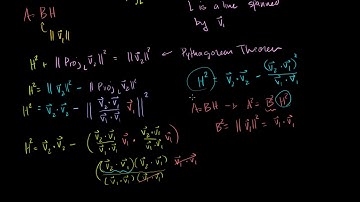 A = BH
‖v⃗₁‖
L is a line spanned
by v⃗₁
H² + ‖Proj_L v⃗₂‖² = ‖v⃗₂‖² ← Pythagorean Theorem
H² = ‖v⃗₂‖² − ‖Proj_L v⃗₂‖²
H² = v⃗₂·v⃗₂ − ‖(v⃗₂·v⃗₁)/(v⃗₁·v⃗₁) v⃗₁‖²
H² = v⃗₂·v⃗₂ − ((v⃗₂·v⃗₁)/(v⃗₁·v⃗₁) v⃗₁ · (v⃗₂·v⃗₁)/(v⃗₁·v⃗₁) v⃗₁)
((v⃗₂·v⃗₁)(v⃗₂·v⃗₁))/((v⃗₁·v⃗₁)(v⃗₁·v⃗₁)) v⃗₁·v⃗₁
H² = v⃗₂·v⃗₂ − (v⃗₂·v⃗₁)²/(v⃗₁·v⃗₁)
A = BH → A² = B²H²
B² = ‖v⃗₁‖² = v⃗₁·v⃗₁